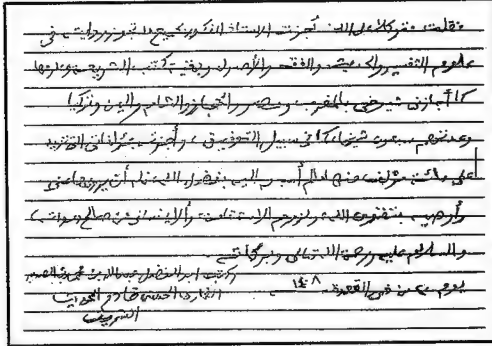 فقلت متوكلا على الله: أجزت الأستاذ المذكور بجميع ما تجوز روايته في
علوم التفسير والحديث والفقه والأصول وبقية كتب الشريعة وعلومها
كما أجازني شيوخي بالمغرب ومصر والحجاز والشام واليمن وتركيا
وعدتهم سبعون شيخا، كما في سبيل التوفيق، وأجزته بمؤلفاتي التي تزيد
على مائة مؤلف منها لم أسم إليه بفضل الله أن يرويها عني
وأوصيه بتقوى الله ولزوم الاستقامة وألا ينساني من صالح دعواته،
والسلام عليه ورحمة الله تعالى وبركاته
وكتب أبو الفضل عبد الله بن محمد بن الصديق
يوم من ذي القعدة ١٤٠٨ الغماري الحسني خادم الحديث
الشريف